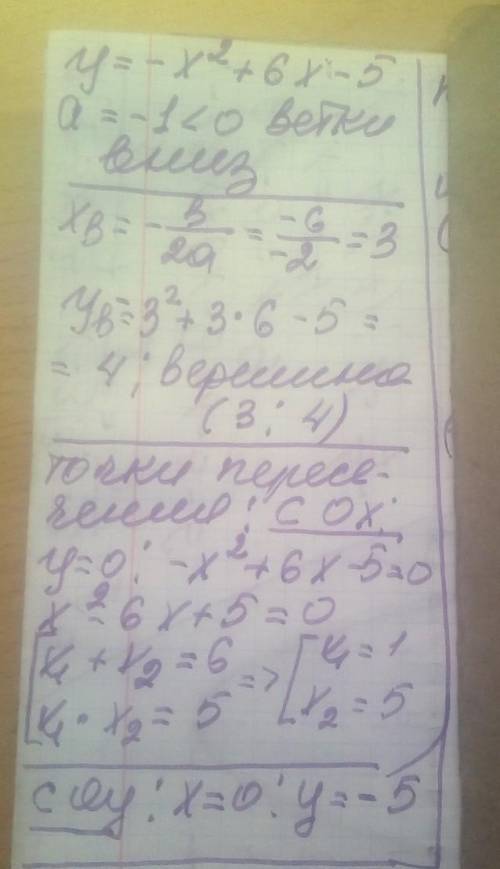 y = -x² + 6x - 5
a = -1 < 0 ветки
вниз
x_в = - в/2a = -6/-2 = 3
y_в = 3² + 3·6 - 5 =
= 4; вершина
(3; 4)
точки пересе-
чения: с Ox:
y=0: -x² + 6x - 5 = 0
x² - 6x + 5 = 0
[x₁ + x₂ = 6
x₁ · x₂ = 5 => [x₁ = 1
x₂ = 5
с Oy: x=0: y = -5